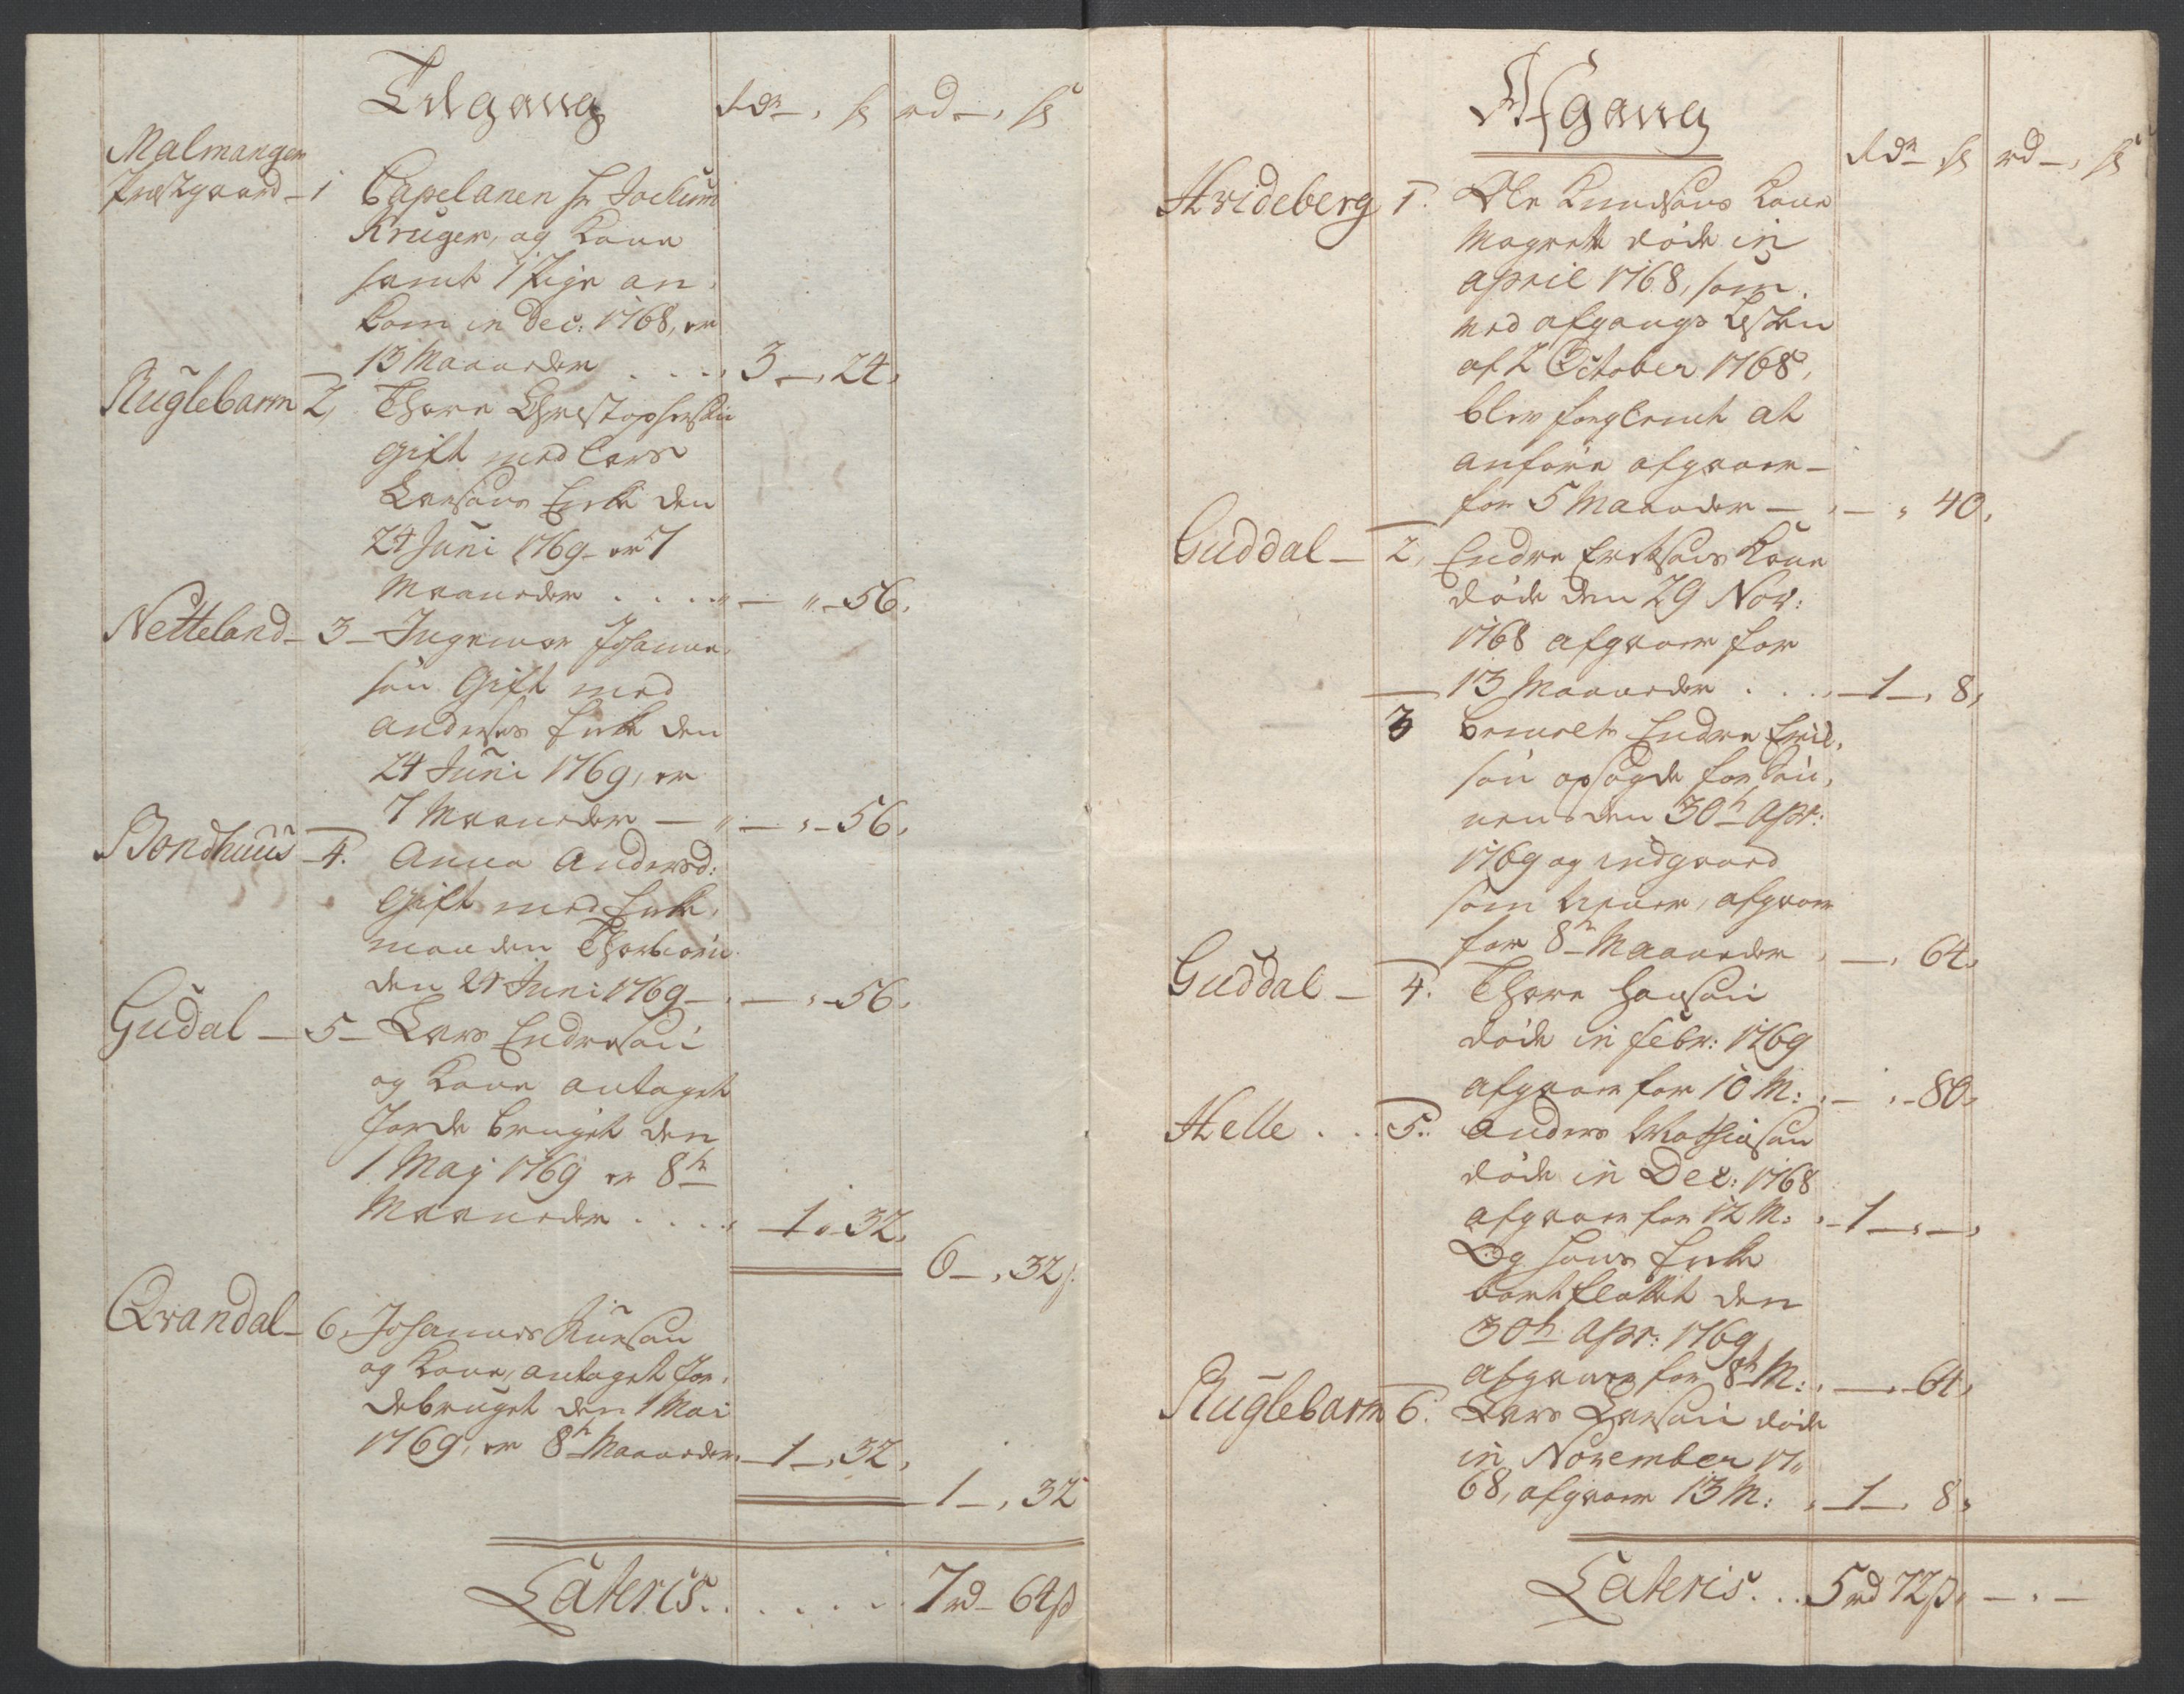 Tilgang rdr ß rd ß
Malmanger
Præstgaard 1 Capelanen hr Jochum
Kruger, og Kone
samt 1 Pige an,
kom in Dec: 1768, er
13 Maaneder . . . . 3 – 24,
Ruglebarm 2, Thore Christophersøn
gift med Lars
Larsøns Enke den
24 Juni 1769 – er 7
Maaneder . . . . „ – „ – 56,
Netteland – 3 – Ingemor Johanne,
søn Gift med
Anderses Enke den
24 Juni 1769, er
7 Maaneder – „ – „ – 56,
Bondhuus – 4. Anna Andersd:
Gift med Enke,
manden Thorbiørn
den 21 Juni 1769 – „ – „ – 56,
Gudal – 5 – Lars Endresøn
og Kone antaget
Jorde bruget den
1 Maj 1769 er 8te
Maaneder . . . . – 1 „ 32,
6 – , 32ß
Qvandal – 6, Johannes
og Kone, antaget Jor,
debruget den 1 Mai
1769, er 8te Maaneder – 1 – , 32,
1 – , 32
Lateris . . . . . . 7 rd – 64ß
Afgang
rdr ß rd – , ß
Hvideberg 1. Ole Knudsøns Kone
Magrete døde in
april 1768, som
ved afgangs Listen
af 2 October 1768,
blev forglemt at
anføre afgaaer –
for 5 Maaneder – , – „ 40,
Guddal – 2, Endre Erichsøns Kone
døde den 29 Nov:
1768 afgaaer for
13 Maaneder . . . . – 1 – , 8,
3 bemelte Endre Erich,
søn opsagde for Søn,
nen den 30te Apr:
1769 og indgaaed
som , afgaaer
for 8te Maaneder , – , 64,
Guddal – 4. Thore Hansøn
døde in febr: 1769
afgaaer for 10 M: , – , – 80,
Helle . . . 5. Anders Mathiasøn
døde in Dec: 1768
afgaaer for 12 M: , – 1 – , – ,
Og hans Enke
bortfløttet den
30te Apr: 1769
afgaaer for 8te M: , – , – 64,
Ruglebarm 6. Lars Larsøn døde
in November 17„
68, afgaaer 13 M: , – 1 – , 8,
Lateris . . . 5 rd 72ß, – . –